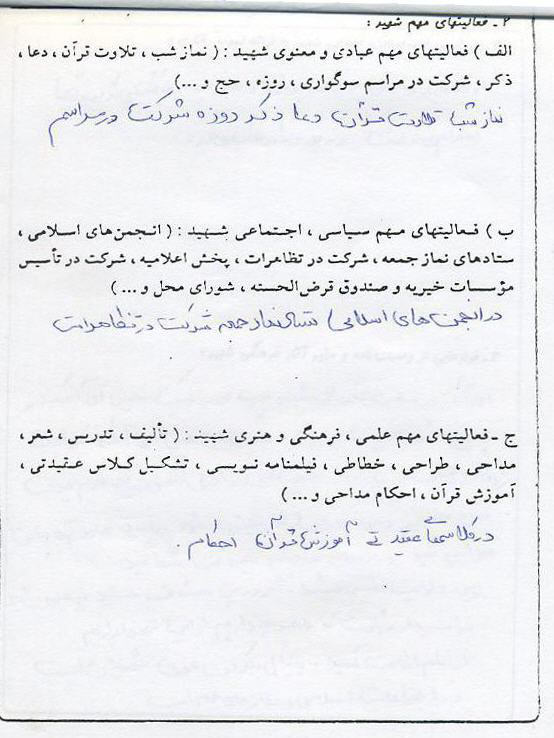 ۲ - فعالیتهای مهم شهید :
الف ) فعالیتهای مهم عبادی و معنوی شهید : ( نماز شب ، تلاوت قرآن ، دعا ،
ذکر ، شرکت در مراسم سوگواری ، روزه ، حج و ...)
نماز شب تلاوت قرآن دعا ذکر روزه شرکت در مراسم
ب ) فعالیتهای مهم سیاسی ، اجتماعی شهید : ( انجمن‌های اسلامی ،
ستادهای نماز جمعه ، شرکت در تظاهرات ، پخش اعلامیه ، شرکت در تأسیس
مؤسسات خیریه و صندوق قرض‌الحسنه ، شورای محل و ... )
در انجمن های اسلامی نماز جمعه شرکت در تظاهرات
ج - فعالیتهای مهم علمی ، فرهنگی و هنری شهید : ( تألیف ، تدریس ، شعر ،
مداحی ، طراحی ، خطاطی ، فیلمنامه نویسی ، تشکیل کلاس عقیدتی ،
آموزش قرآن ، احکام مداحی و ... )
در کلاسهای عقیدتی آموزش قرآن احکام .